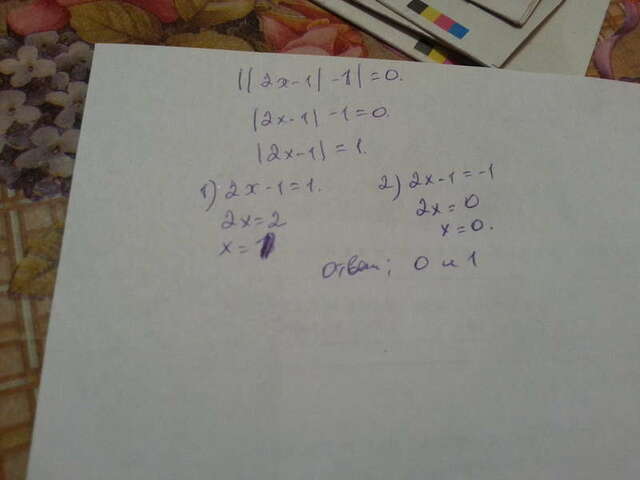 ||2x-1|-1|=0.
|2x-1|-1=0.
|2x-1|=1.
1) 2x-1=1.
2x=2
x=1
2) 2x-1=-1
2x=0
x=0.
Ответ: 0 и 1